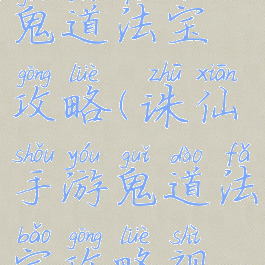 鬼道法宝
gōng lüè zhū xiān
攻略(诛仙
shǒu yóu guǐ dào fǎ
手游鬼道法
bǎo gōng lüè shì
宝攻略视